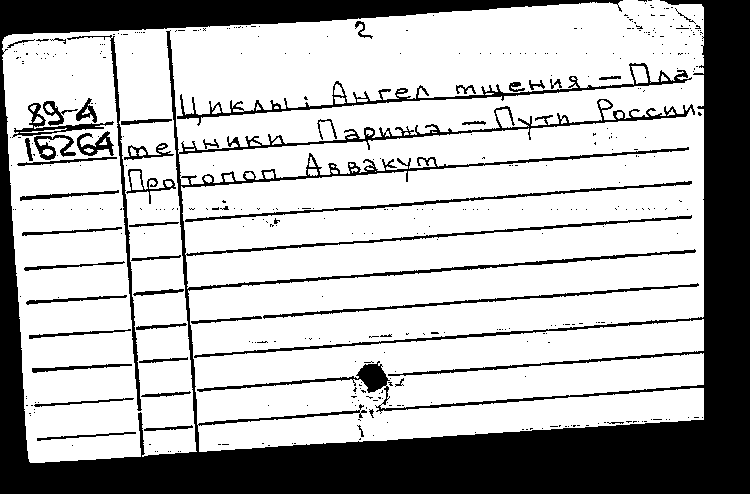 2
Циклы: Ангел мщения. — Пла-
89-4
менники Парижа. — Пути России.
15264
Протопоп Аввакум.